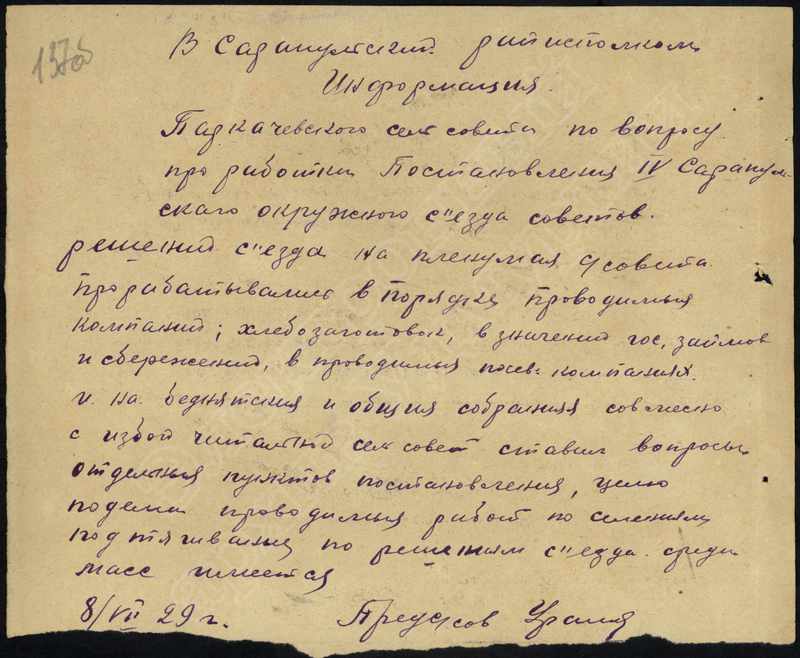 137об
В Сарапультский райисполком
Информация.
Паркачевского сельсовета по вопросу
проработки Постановления IV Сарапуль-
ского окружного с"езда советов.
решений с"езда на пленумая с/совета
прорабатывались в порядке проводимыя
компаний; хлебозаготовок, взначений гос, займов
и сбережений, в проводимыя посев. компаниях.
и на беднятския и общия собрания совмесно
с избой читальной сельсовет ставил вопросы
отдельныя пунктов постановления, целю
подема проводимыя работ по селениям
подтягивание по решениям с"езда среди
масс имеется
8/VII 29 г. Предс/сов